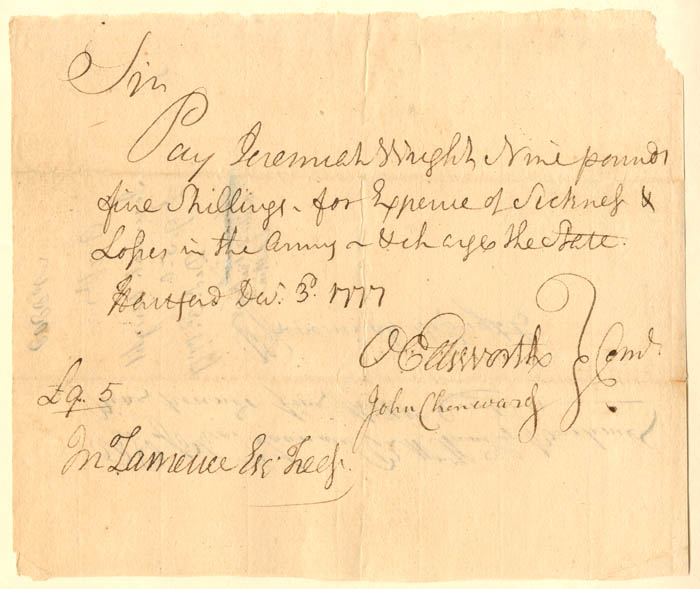 Sir
Pay Jeremiah Wright Nine pounds
five Shillings - for Expence of Sickness &
Losses in the Army - & charge the State.
Hartford Decr. 3d. 1777
O Ellsworth } Comtt.
John Chenward
£9. 5
Jn Lawrence Esqr Treasr.